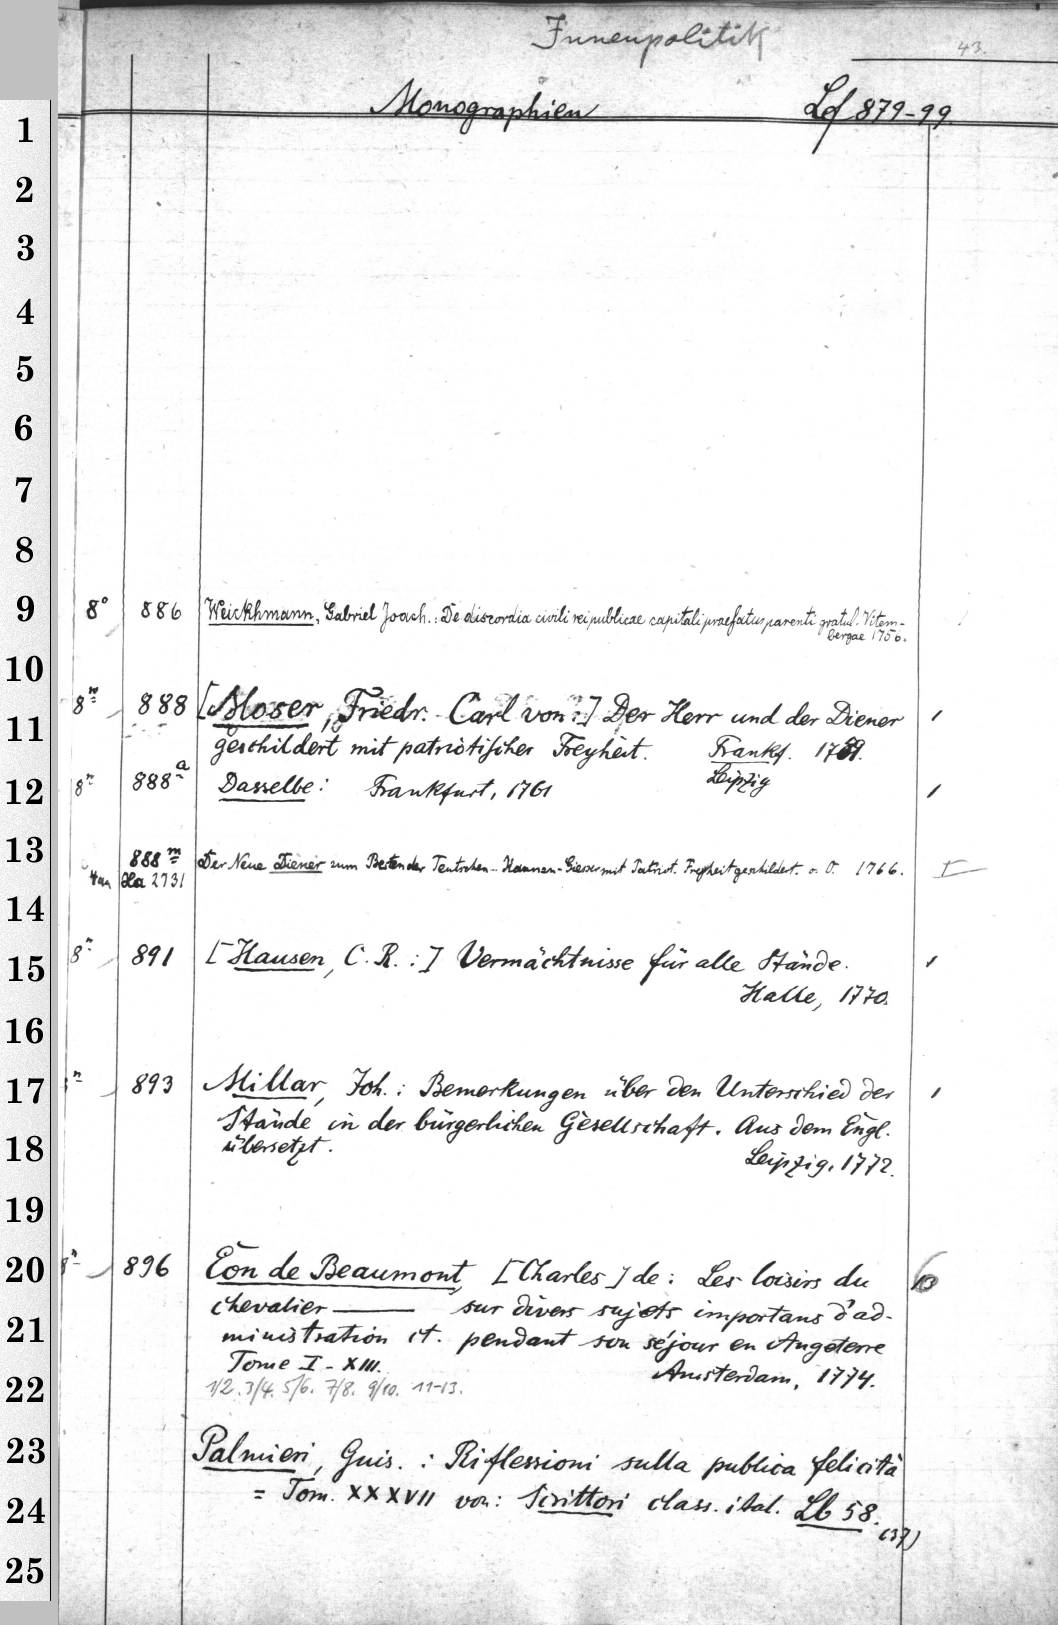 Innenpolitik
43.
Monographien Lf 879-99.
1
2
3
4
5
6
7
8
9 8° 886 Weickhmann, Gabriel Joach.: De discordia civili reipublicae capitali praefatus parenti gratul. Vitem-
bergae 1750.
10
8n 888 [Moser, Friedr. Carl von:] Der Herr und der Diener
11 geschildert mit patriotischer Freyheit. Frankf. 1759.
Leipzig
12 8n 888a Dasselbe: Frankfurt, 1761
13 888m Der Neue Diener zum Besten der Teutschen Kannen-Giesser mit Patriot. Freyheit geschildert. o. O. 1766. I
4an Ha 2731
14
15 8n 891 [Hausen, C. R.:] Vermächtnisse für alle Stände.
Halle, 1770.
16
17 n 893 Millar, Joh.: Bemerkungen über den Unterschied der
Stände in der bürgerlichen Gesellschaft. Aus dem Engl.
18 übersetzt.
Leipzig, 1772.
19
20 8n 896 Éon de Beaumont, [Charles] de: Les loisirs du 6
chevalier —— sur divers sujets importans d'ad-
21 ministration et. pendant son séjour en Angeterre
Tome I-XIII. Amsterdam, 1774.
22 1/2. 3/4. 5/6. 7/8. 9/10. 11-13.
23 Palmieri, Guis.: Riflessioni sulla publica felicità
= Tom. XXXVII von: Scrittori class. ital. Lb 58.
24 (37)
25